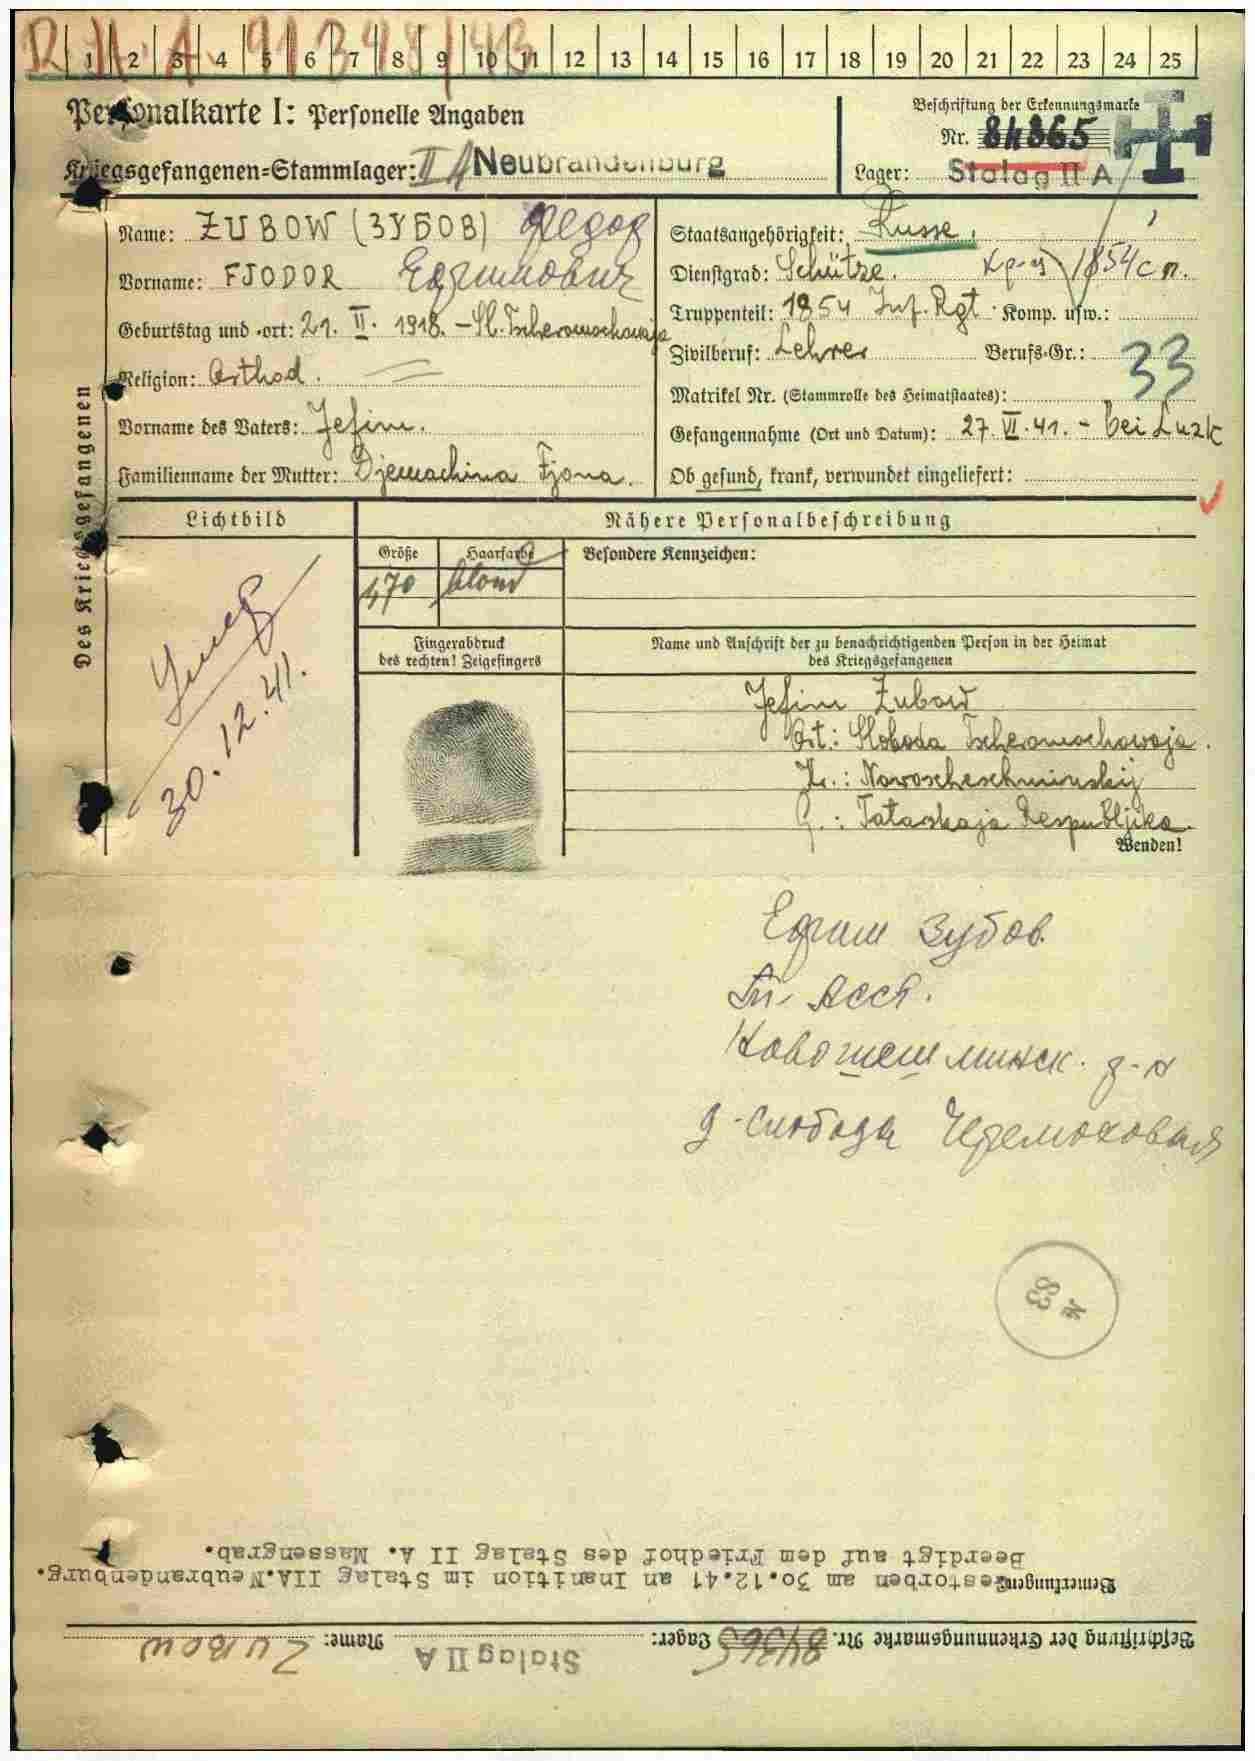 R.H.A. 91348/43
1 2 3 4 5 6 7 8 9 10 11 12 13 14 15 16 17 18 19 20 21 22 23 24 25
Personalkarte I: Personelle Angaben
Kriegsgefangenen-Stammlager: II A Neubrandenburg
Beschriftung der Erkennungsmarke
Nr. 84365
Lager: Stalag II A
Des Kriegsgefangenen
Name: ZUBOW (ЗУБОВ) Федор
Vorname: FJODOR Ефимович
Geburtstag und -ort: 21. II. 1918. - Sl. Tscheromschowaja
Religion: Orthod.
Vorname des Vaters: Jefim.
Familienname der Mutter: Djemachina Fjona.
Staatsangehörigkeit: Russe.
Dienstgrad: Schütze. Кр-ц 1854 с.п.
Truppenteil: 1854 Inf. Rgt. Komp. usw.:
Zivilberuf: Lehrer Berufs-Gr.: 33
Matrikel Nr. (Stammrolle des Heimatstaates):
Gefangennahme (Ort und Datum): 27. VI. 41. - bei Luzk
Ob gesund, krank, verwundet eingeliefert:
Lichtbild
Умер
30.12.41.
Nähere Personalbeschreibung
Größe Haarfarbe Besondere Kennzeichen:
170 blond
Fingerabdruck
des rechten! Zeigefingers
Name und Anschrift der zu benachrichtigenden Person in der Heimat
des Kriegsgefangenen
Jefim Zubow
Ort: Sloboda Tscheromochowaja.
Kr.: Nowoscheschminskij
G.: Tatarskaja Respubljika.
Wenden!
Ефим Зубов.
Тат. АССР.
Новошешминск. р-н
д-Слобода Черемоховая
83
Bemerkungen: Gestorben am 30.12.41 an Inanition im Stalag IIA.Neubrandenburg.
Beerdigt auf dem Friedhof des Stalag II A. Massengrab.
Beschriftung der Erkennungsmarke Nr. 84365 Lager: Stalag II A Name: Zubow